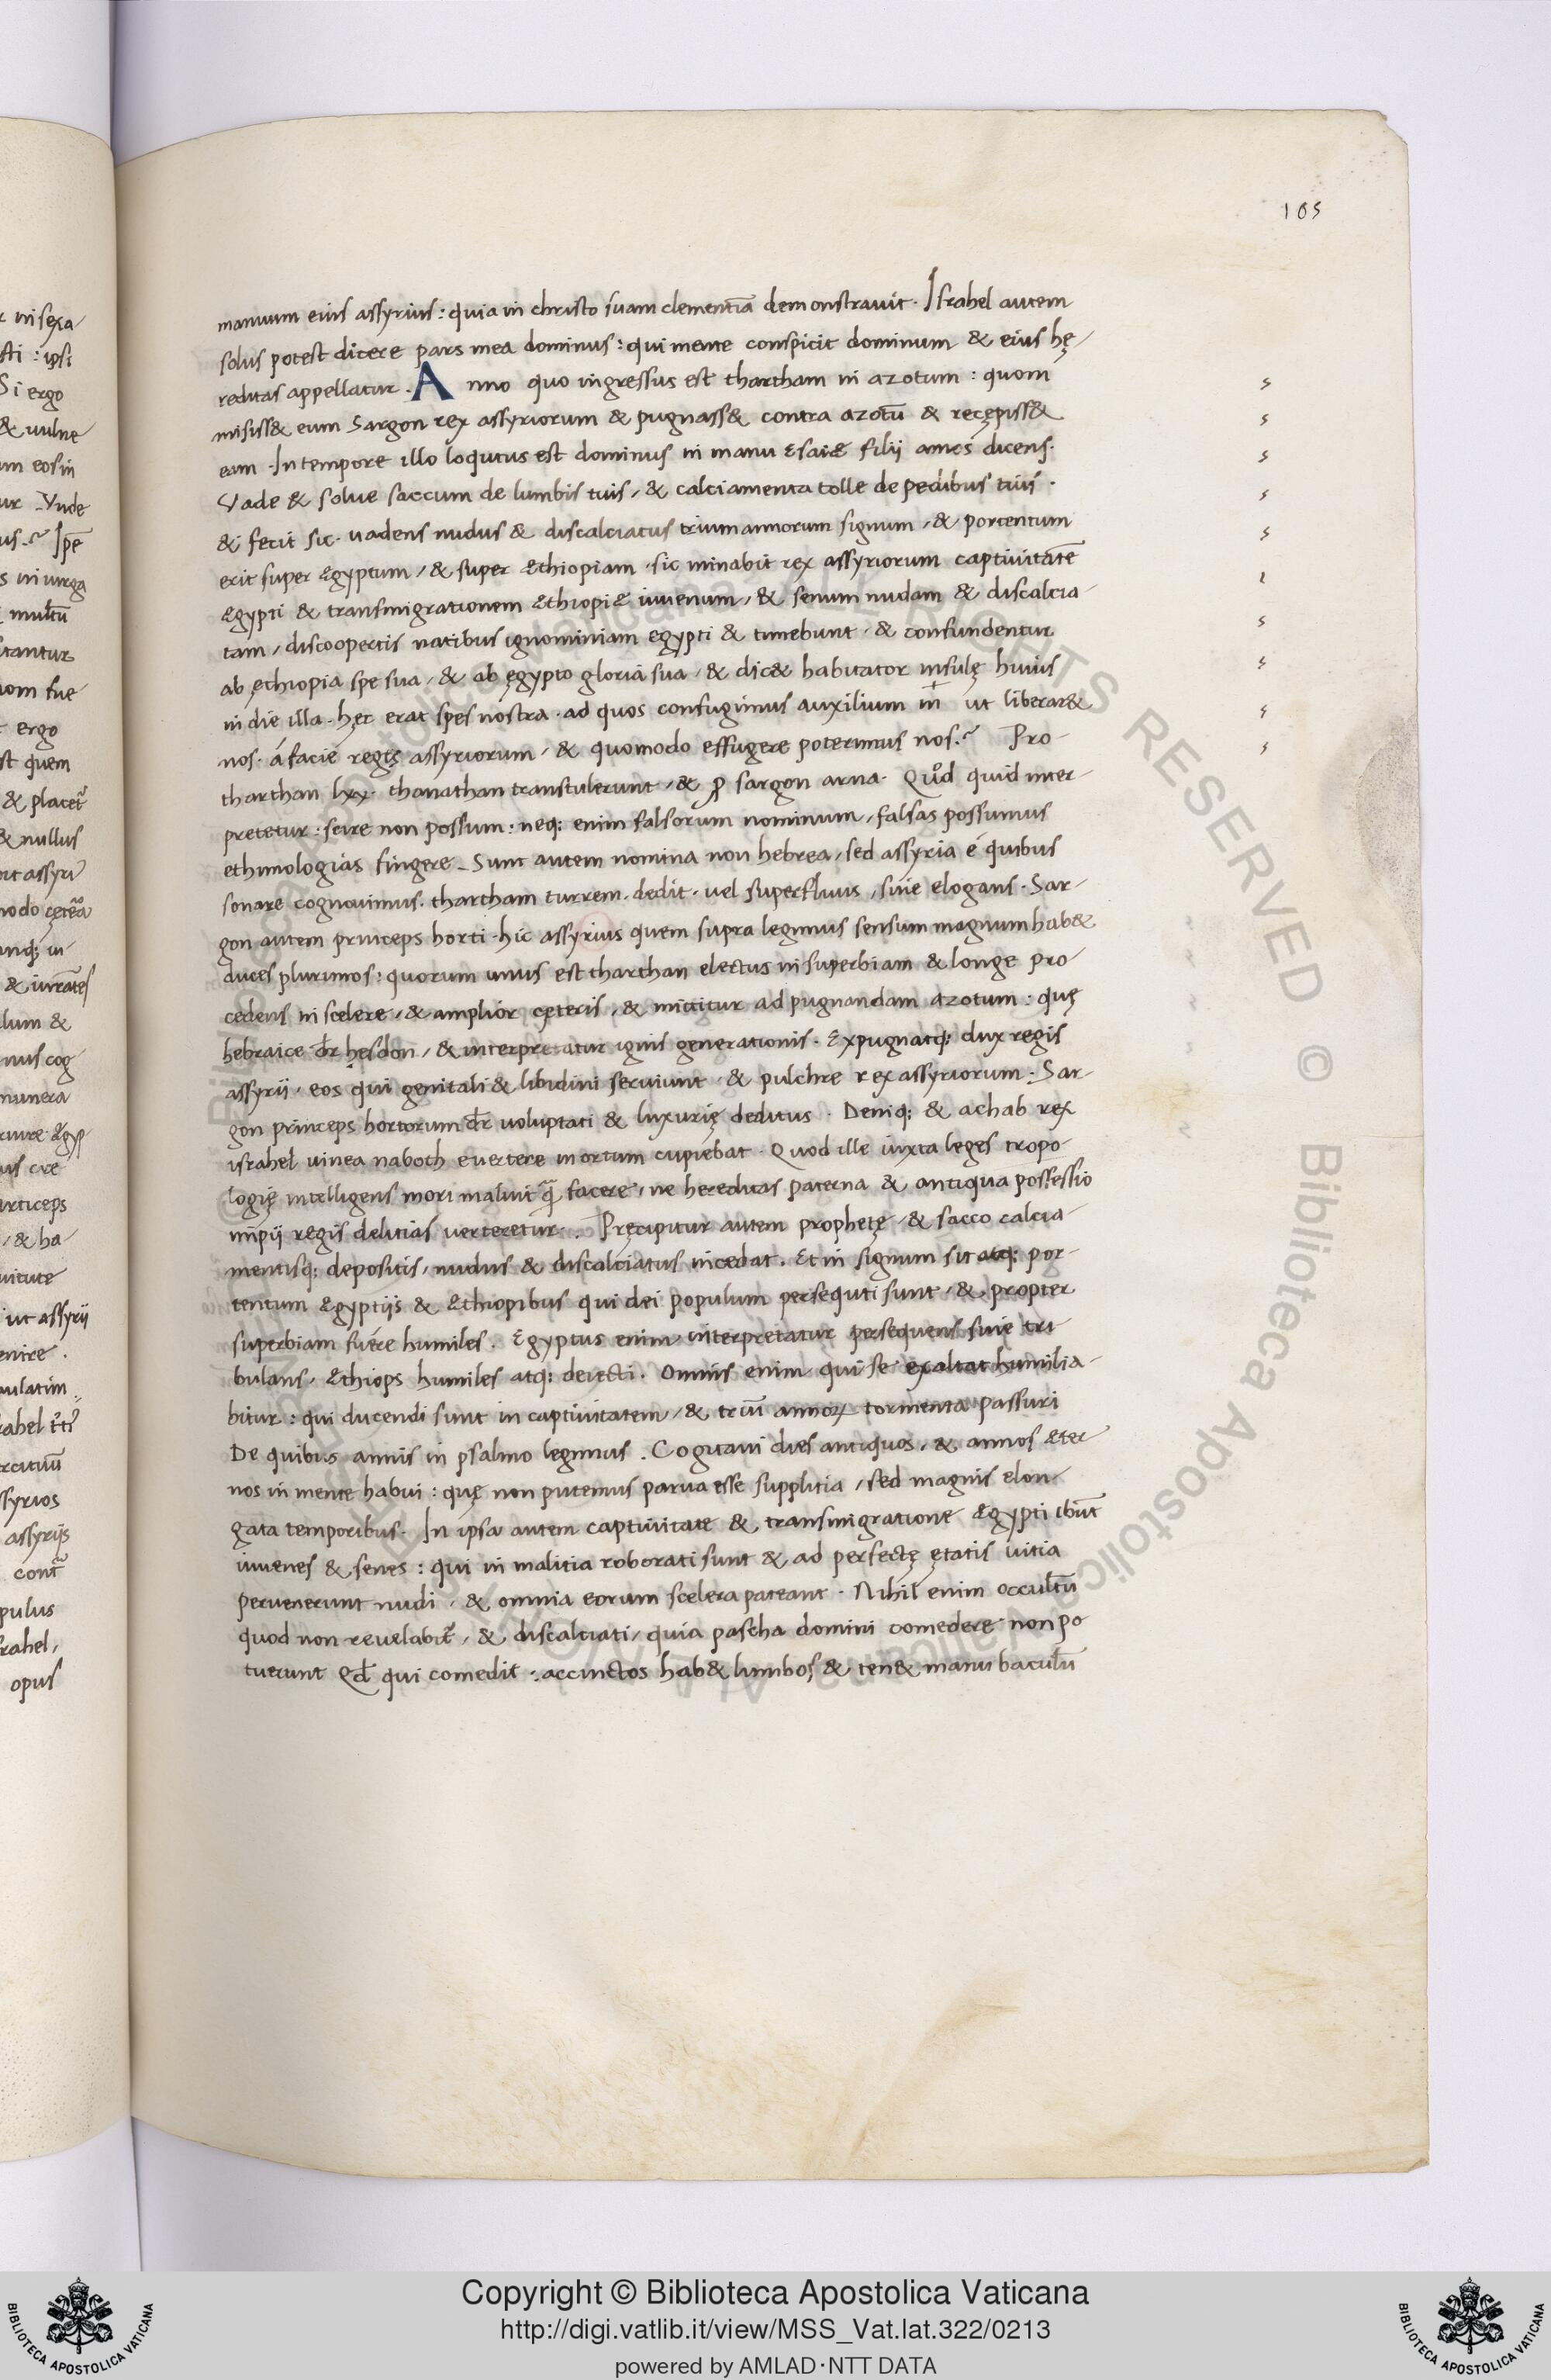 105
manuum eius assyrius : quia in christo suam clementiā demonstrauit . Israhel autem
solus potest dicere pars mea dominus : qui mente conspicit dominum & eius hę-
reditas appellatur . Anno quo ingressus est thartham in azotum : quom
misiss& eum Sargon rex assyriorum & pugnass& contra azotū & recępiss&
eam . In tempore illo loqutus est dominus in manu Esaiæ filij amos dicens .
Vade & solue saccum de lumbis tuis , & calciamenta tolle de pedibus tuis .
& fecit sic . uadens nudus & discalciatus trium annorum signum , & portentum
erit super ægyptum , & super æthiopiam . sic minabit rex assyriorum captiuitatē
ægypti & transmigrationem æthiopiæ iuuenum , & senum nudam & discalcia-
tam , discoopertis natibus ignominiam egypti & timebunt . & confundentur
ab ęthiopia spe sua , & ab ęgypto gloria sua , & dic& habitator insulę huius
in die illa . hęc erat spes nostra . ad quos confugimus auxilium in ut liberar&
nos . á facie regis assyriorum , & quomodo effugere poterimus nos . ? Pro
tharthan lxx . thanathan transtulerunt , & ꝓ sargon arna . Quod quid inter-
pretetur : scire non possum : neq; enim falsorum nominum , falsas possumus
ethimologias fingere . Sunt autem nomina non hebrea , sed assyria é quibus
sonare cognouimus . thartham turrem . dedit . uel superfluus , siue elogans . Sar-
gon autem princeps horti . hic assyrius quem supra legimus sensum magnum hab&
duces plurimos : quorum unus est tharthan electus in superbiam & longe pro-
cedens in scelere , & amplior cęteris , & mittitur ad pugnandam azotum : quę
hebraice dr̄ hesdon , & interpretatur ignis generationis . Expugnatq; dux regis
assyrii , eos qui genitali & libidini seruiunt . & pulchre rex assyriorum . Sar-
gon princeps hortorum dr̄ uoluptati & luxurię deditus . Deniq; & achab rex
israhel uinea naboth euertere in ortum cupiebat . Quod ille iuxta leges tropo-
logię intelligens mori maluit q̄ facere , ne hereditas paterna & antiqua possessio
impij regis delitias uerteretur . Pręcipitur autem prophetę , & sacco calcia-
mentisq; depositis , nudus & discalciatus incedat . Et in signum sit atq; por-
tentum ægyptijs & æthiopibus qui dei populum persequti sunt , & propter
superbiam fuére humiles . Egyptus enim interpretatur persequens siue tri-
bulans , æthiops humiles atq; deiecti . Omnis enim qui se exaltat humilia-
bitur : qui ducendi sunt in captiuitatem , & triū annoꝝ tormenta passuri
De quibus annis in psalmo legimus . Cogitaui dies antiquos , & annos æter
nos in mente habui : quę non putemus parua esse supplitia , sed magnis elon-
gata temporibus . In ipsa autem captiuitate & transmigratione ægypti ibūt
iuuenes & senes : qui in malitia roborati sunt & ad perfectę ętatis uitia
peruenerunt nudi , & omnia eorum scelera pateant . Nihil enim occultū
quod non reuelabit̃ , & discalciati , quia pascha domini comedere non po
tuerunt Qđ qui comedit : accinctos hab& lumbos , & ten& manu baculū
Copyright © Biblioteca Apostolica Vaticana
http://digi.vatlib.it/view/MSS_Vat.lat.322/0213
powered by AMLAD·NTT DATA